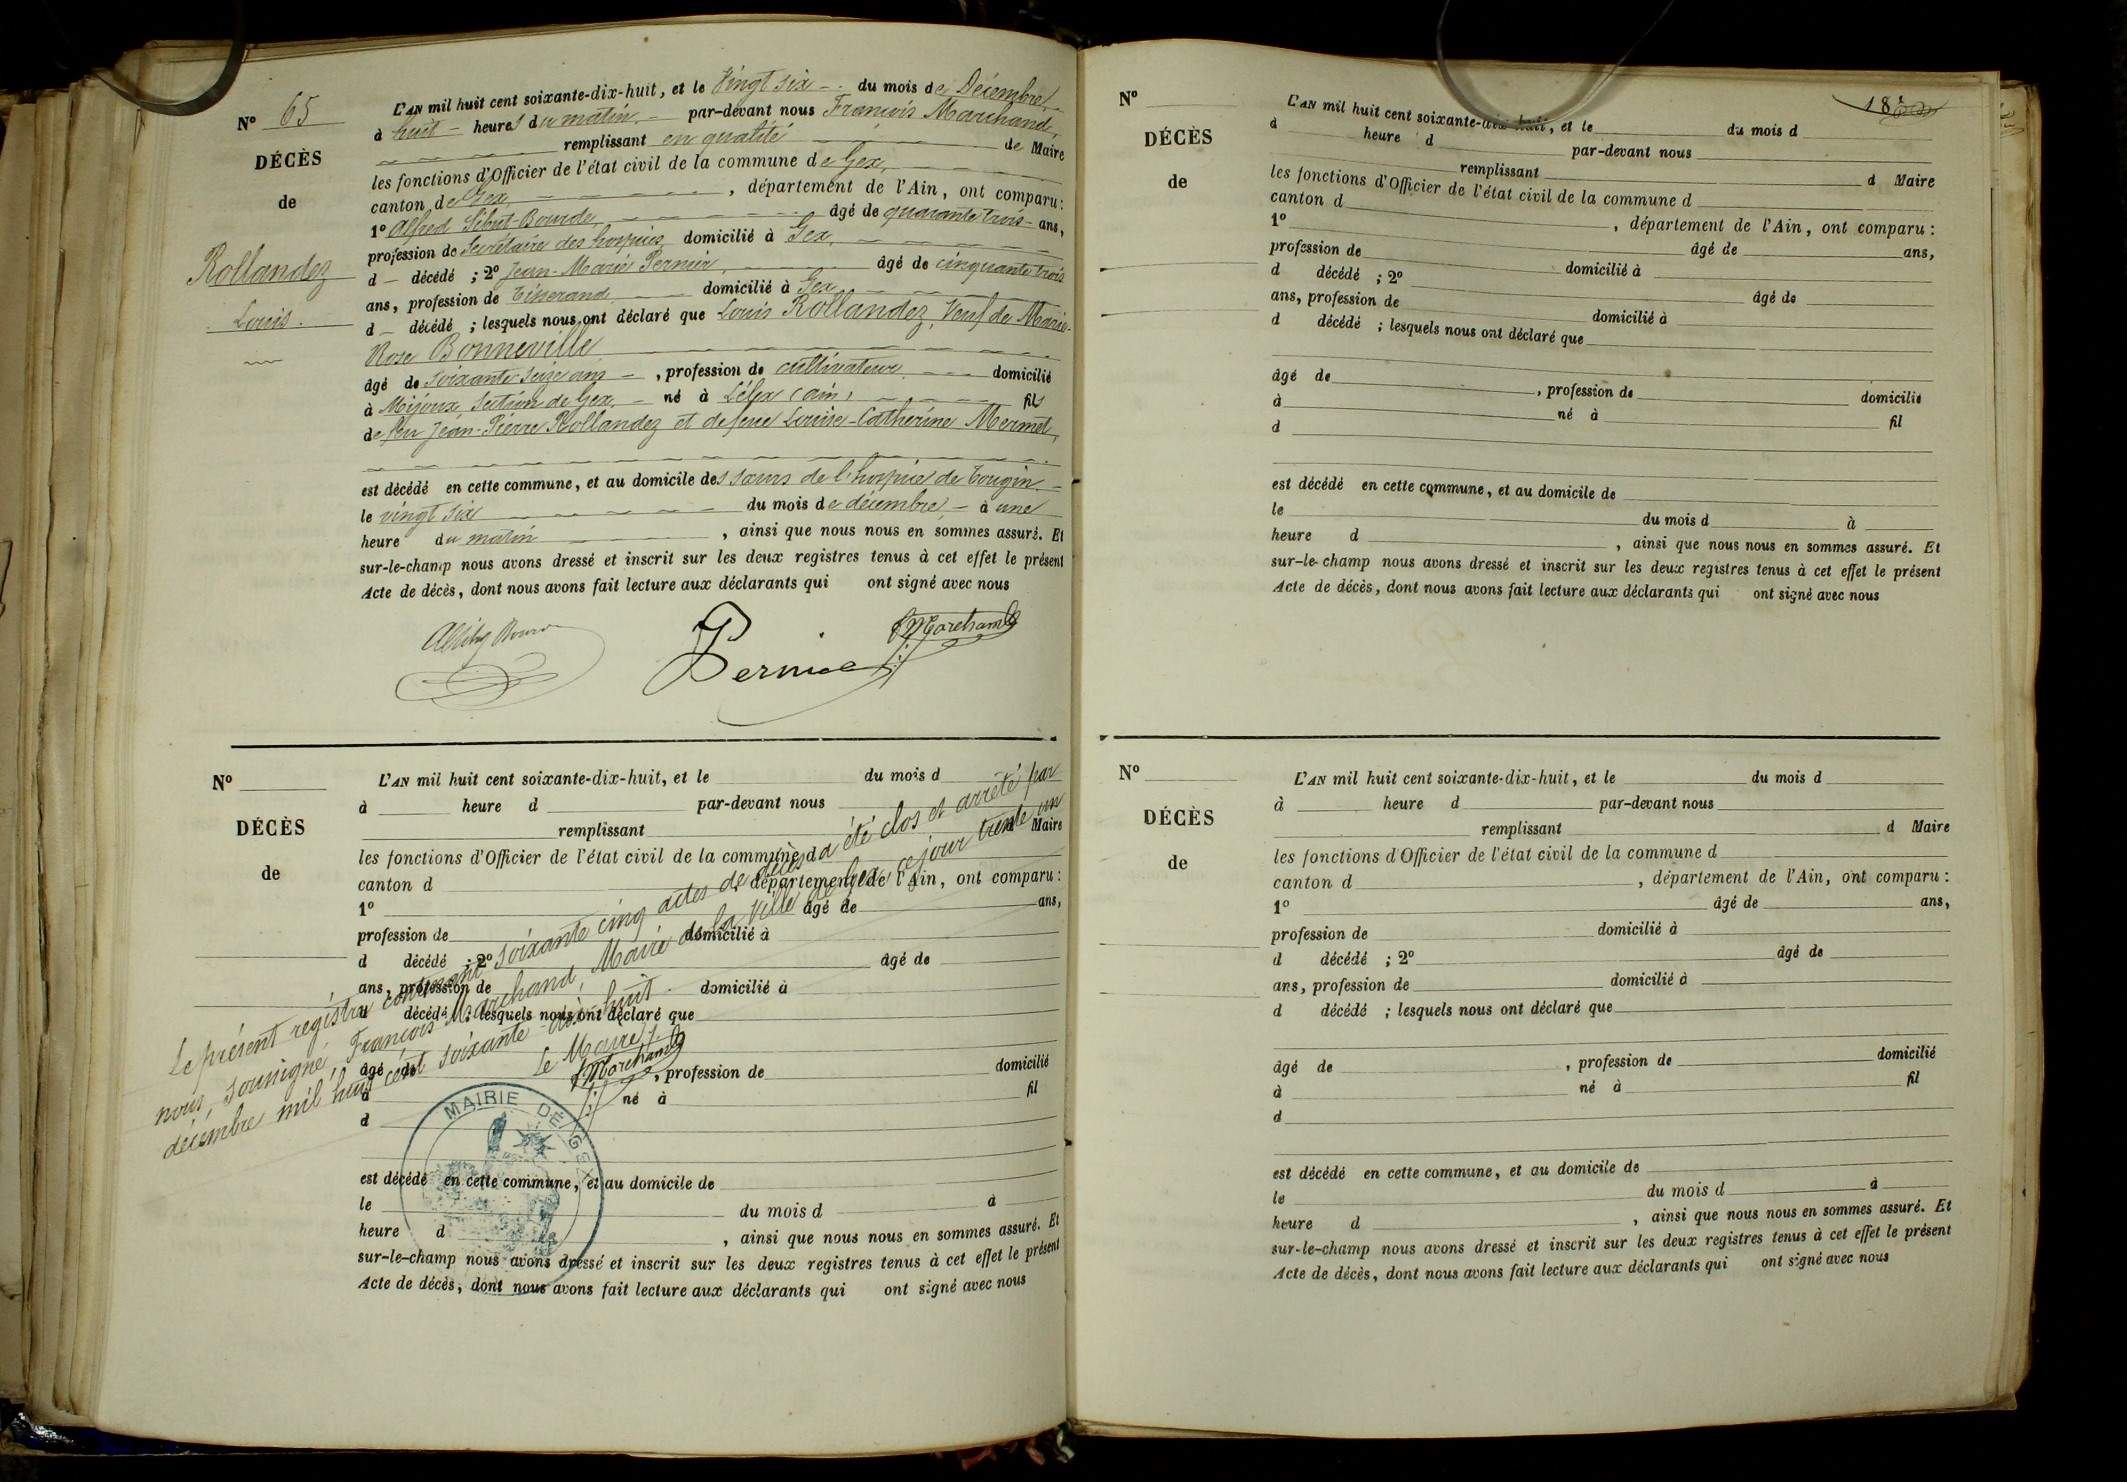 N° 65
DÉCÈS
de
Rollandez
Louis.
L'AN mil huit cent soixante-dix-huit, et le Vingt six du mois de Décembre,
à huit heures du matin, par-devant nous François Marchand,
remplissant en qualité de Maire
les fonctions d'Officier de l'état civil de la commune de Gex,
canton de Gex, département de l'Ain, ont comparu:
1° Alfred Sibut-Bourde, âgé de quarante trois ans,
profession de Secrétaire des hospices domicilié à Gex,
d décédé ; 2° Jean-Marie Pernier, âgé de cinquante trois
ans, profession de Tisserand domicilié à Gex
d décédé ; lesquels nous ont déclaré que Louis Rollandez, Veuf de Marie-
Rose Bonneville
âgé de soixante-seize ans, profession de cultivateur domicilié
à Mijoux Section de Gex, né à Lélex (ain) fils
de feu Jean-Pierre Rollandez et de feue Louise-Catherine Mermet,
est décédé en cette commune, et au domicile des sœurs de l'hospice de Tougin
le vingt six du mois de décembre à une
heure du matin, ainsi que nous nous en sommes assuré. Et
sur-le-champ nous avons dressé et inscrit sur les deux registres tenus à cet effet le présent
Acte de décès, dont nous avons fait lecture aux déclarants qui ont signé avec nous
Pernier
Marchand
N°
DÉCÈS
de
L'AN mil huit cent soixante-dix-huit, et le du mois d
à heure d par-devant nous
remplissant d Maire
les fonctions d'Officier de l'état civil de la commune d
canton d , département de l'Ain, ont comparu:
1° âgé de ans,
profession de domicilié à
d décédé ; 2° âgé de
ans, profession de domicilié à
d décédé ; lesquels nous ont déclaré que
âgé de , profession de domicilié
à né à fil
d
est décédé en cette commune, et au domicile de
le du mois d à
heure d , ainsi que nous nous en sommes assuré. Et
sur-le-champ nous avons dressé et inscrit sur les deux registres tenus à cet effet le présent
Acte de décès, dont nous avons fait lecture aux déclarants qui ont signé avec nous
Le présent registre contenant soixante cinq actes de décès a été clos et arrêté par
nous, soussigné, François Marchand, Maire de la Ville de Gex, ce jour trente un
décembre mil huit cent soixante-dix-huit.
Le Maire,
Marchand
MAIRIE DE GEX
N°
DÉCÈS
de
L'AN mil huit cent soixante-dix-huit, et le du mois d
à heure d par-devant nous
remplissant d Maire
les fonctions d'Officier de l'état civil de la commune d
canton d
1° , département de l'Ain, ont comparu:
profession de âgé de ans,
d décédé ; 2° domicilié à
ans, profession de âgé de
d décédé ; lesquels nous ont déclaré que domicilié à
âgé de , profession de domicilié
à né à fil
d
est décédé en cette commune, et au domicile de
le du mois d à
heure d , ainsi que nous nous en sommes assuré. Et
sur-le-champ nous avons dressé et inscrit sur les deux registres tenus à cet effet le présent
Acte de décès, dont nous avons fait lecture aux déclarants qui ont signé avec nous
N°
DÉCÈS
de
L'AN mil huit cent soixante-dix-huit, et le du mois d
à heure d par-devant nous
remplissant d Maire
les fonctions d'Officier de l'état civil de la commune d
canton d , département de l'Ain, ont comparu:
1° âgé de ans,
profession de domicilié à
d décédé ; 2° âgé de
ans, profession de domicilié à
d décédé ; lesquels nous ont déclaré que
âgé de , profession de domicilié
à né à fil
d
est décédé en cette commune, et au domicile de
le du mois d à
heure d , ainsi que nous nous en sommes assuré. Et
sur-le-champ nous avons dressé et inscrit sur les deux registres tenus à cet effet le présent
Acte de décès, dont nous avons fait lecture aux déclarants qui ont signé avec nous